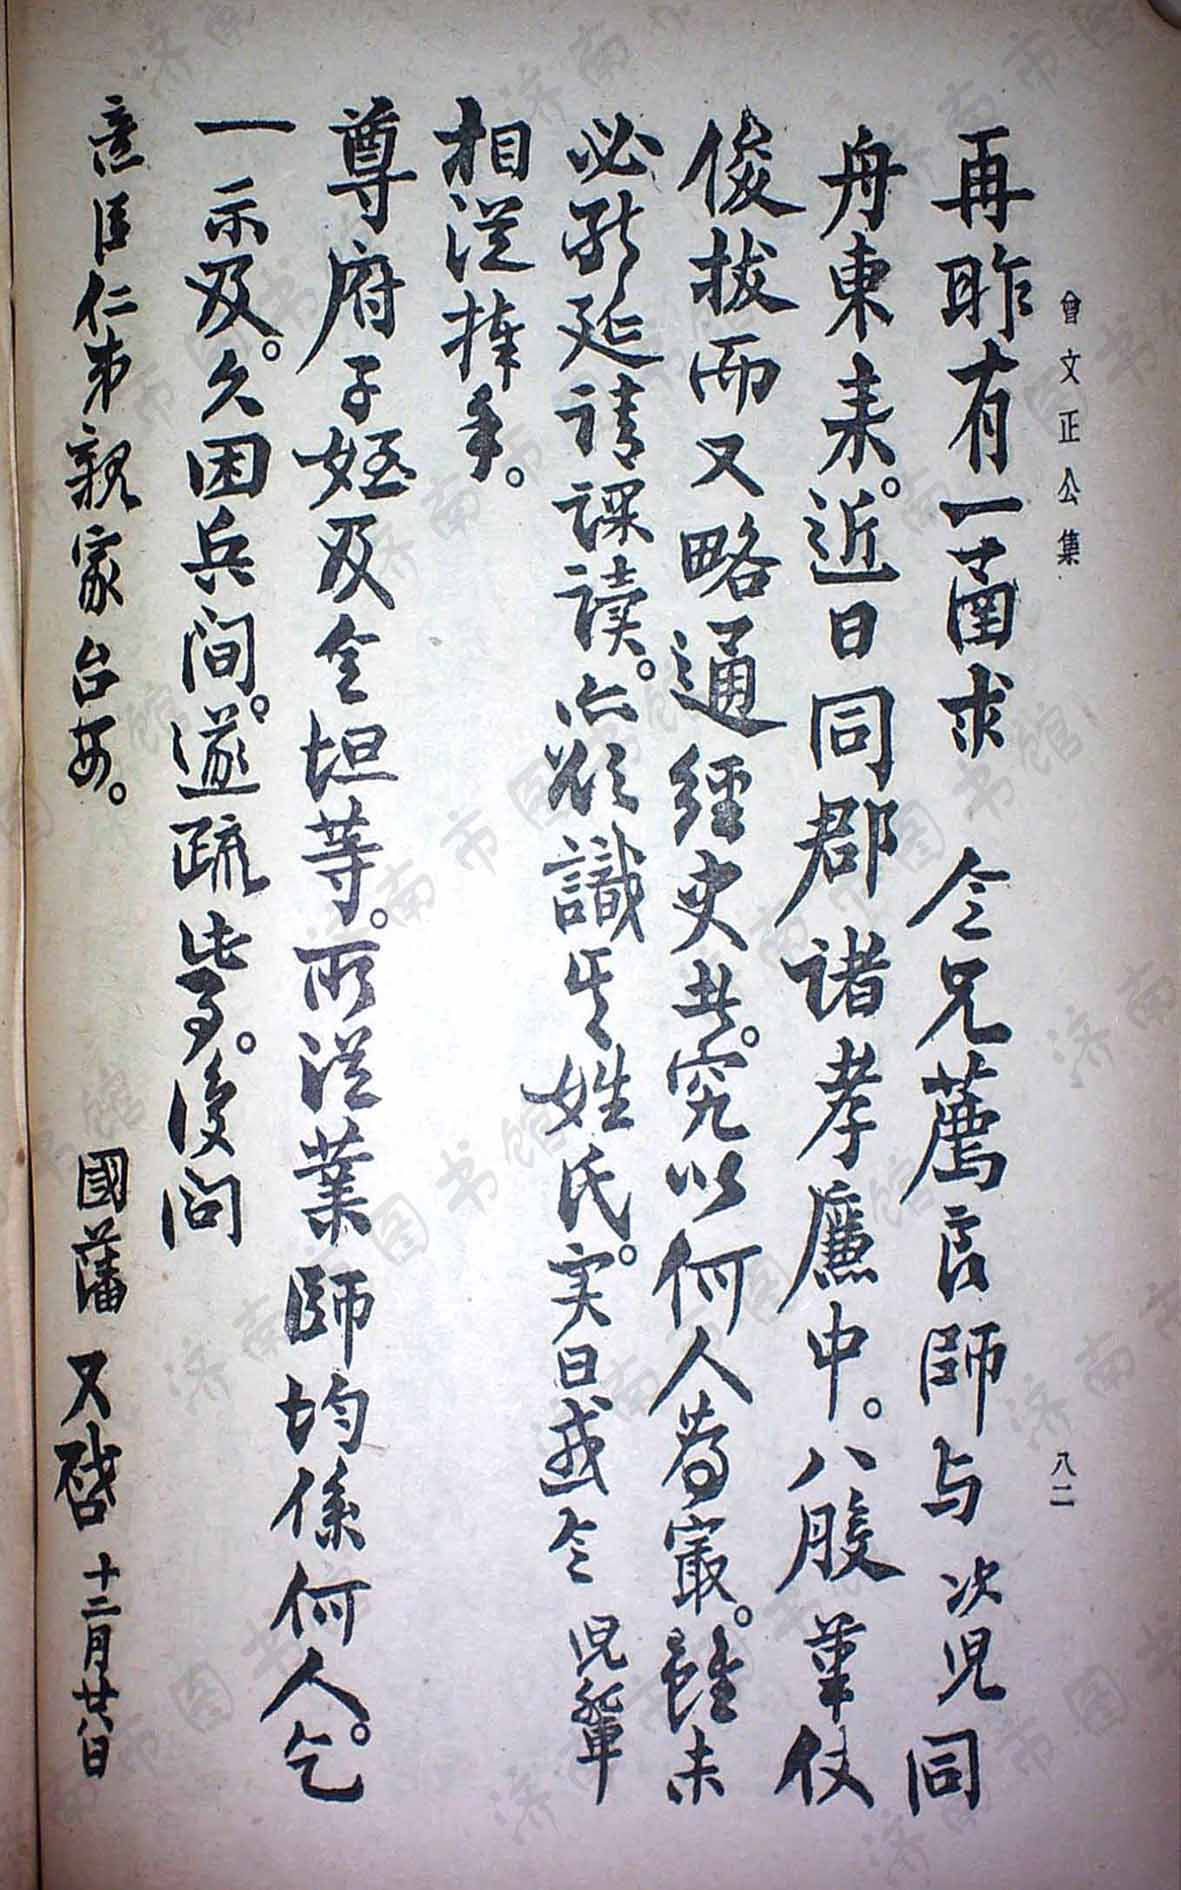 曾文正公集
八二
再昨有一函求 令兄薦良師与 次児同
舟東来。近日同郡諸孝廉中。八股筆仗
俊拔而又略通經史者。究以何人為最。雖未
必能延請課讀。亦欲識其姓氏。実日或令 児輩
相從捧手。
尊府子姪及令坦等。所従業師均係何人。乞
一示及。久困兵間。遂疏此事。復問
意臣仁弟親家台安。
國藩 又啓 十二月廿八日
济南市图书馆